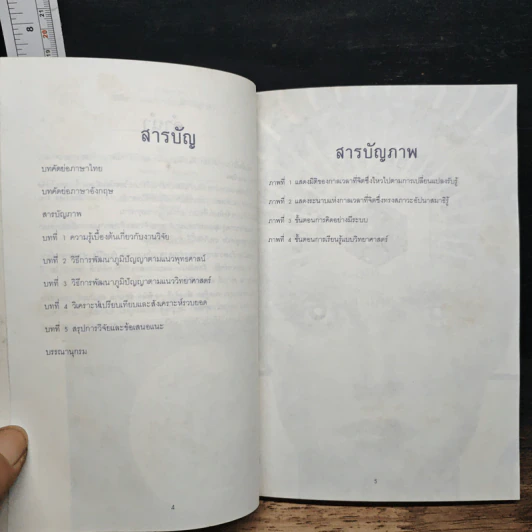 สารบัญ
บทคัดย่อภาษาไทย
บทคัดย่อภาษาอังกฤษ
สารบัญภาพ
บทที่ 1 ความรู้เบื้องต้นเกี่ยวกับงานวิจัย
บทที่ 2 วิธีการพัฒนาภูมิปัญญาตามแนวพุทธศาสน์
บทที่ 3 วิธีการพัฒนาภูมิปัญญาตามแนววิทยาศาสตร์
บทที่ 4 วิเคราะห์เปรียบเทียบและสังเคราะห์รวบยอด
บทที่ 5 สรุปการวิจัยและข้อเสนอแนะ
บรรณานุกรม
4
สารบัญภาพ
ภาพที่ 1 แสดงมิติของกาลเวลาที่จิตซึ่งไหวไปตามการเปลี่ยนแปลงรับรู้
ภาพที่ 2 แสดงระนาบแห่งกาลเวลาที่จิตซึ่งทรงสภาวะอัปนาสมาธิรู้
ภาพที่ 3 ขั้นตอนการคิดอย่างมีระบบ
ภาพที่ 4 ขั้นตอนการเรียนรู้แบบวิทยาศาสตร์
5
8
20
21